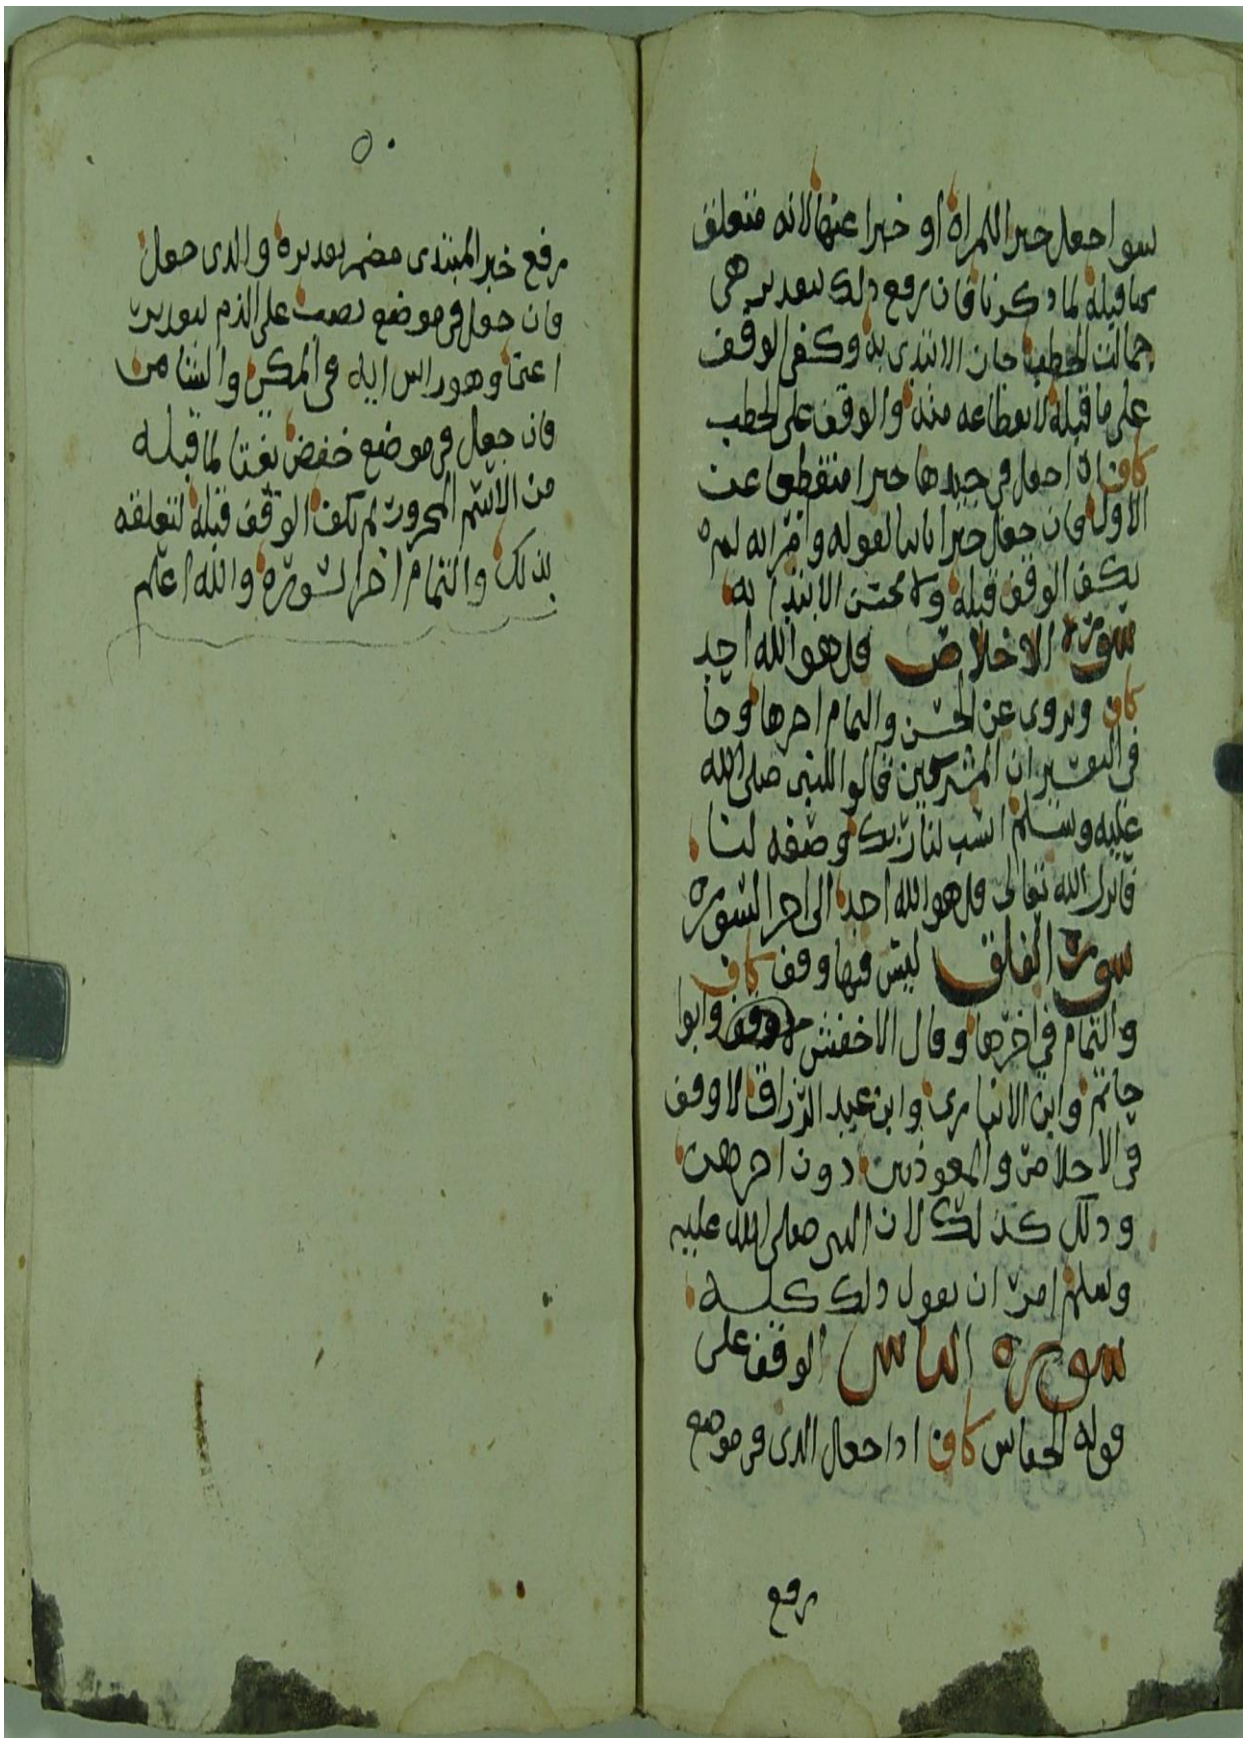 سوا جعل خبرا للمراة او خبرا عنها لانه متعلق
بما قبله لما ذكرنا فان رفع ذلك بتقدير هي
حمالت الحطب جاز الابتدى به وكفى الوقف
على ما قبله لانقطاعه منه والوقف على الحطب
كاف اذا جعل في جيدها خبرا منقطعا عن
الاول فان جعل خبرا ثانيا لقوله وامراته لم
يكف الوقف قبله ولا يحسن الابتدا به
سورة الاخلاص قل هو الله احد
كاف ويروى عن الحسن والتمام اخرها وجا
في التفسير ان المشركين قالوا للنبي صلى الله
عليه وسلم انسب لنا ربك وصفه لنا
فانزل الله تعالى قل هو الله احد الى اخر السورة
سورة الفلق ليس فيها وقف كاف
والتمام في اخرها وقال الاخفش لا وقف وابوا
حاتم وابن الانباري وابن عبد الرزاق لا وقف
في الاخلاص والمعوذتين دون اخرهن
وذلك كذلك لان النبي صلى الله عليه
وسلم امر ان يقول ذلك كله
سورة الناس الوقف على
قوله الخناس كاف اذا جعل الذي في موضع
رفع
٥٠
رفع خبر المبتدى مضمر بعديره والذي جعل
فان جعل في موضع نصب على الذم بتقدير
اعنا وهو راس ايه في المكي والشامي
فان جعل في موضع خفض نعتا لما قبله
من الاسم المجرور لم يكف الوقف قبله لتعلقه
بذلك والتمام اخر السورة والله اعلم